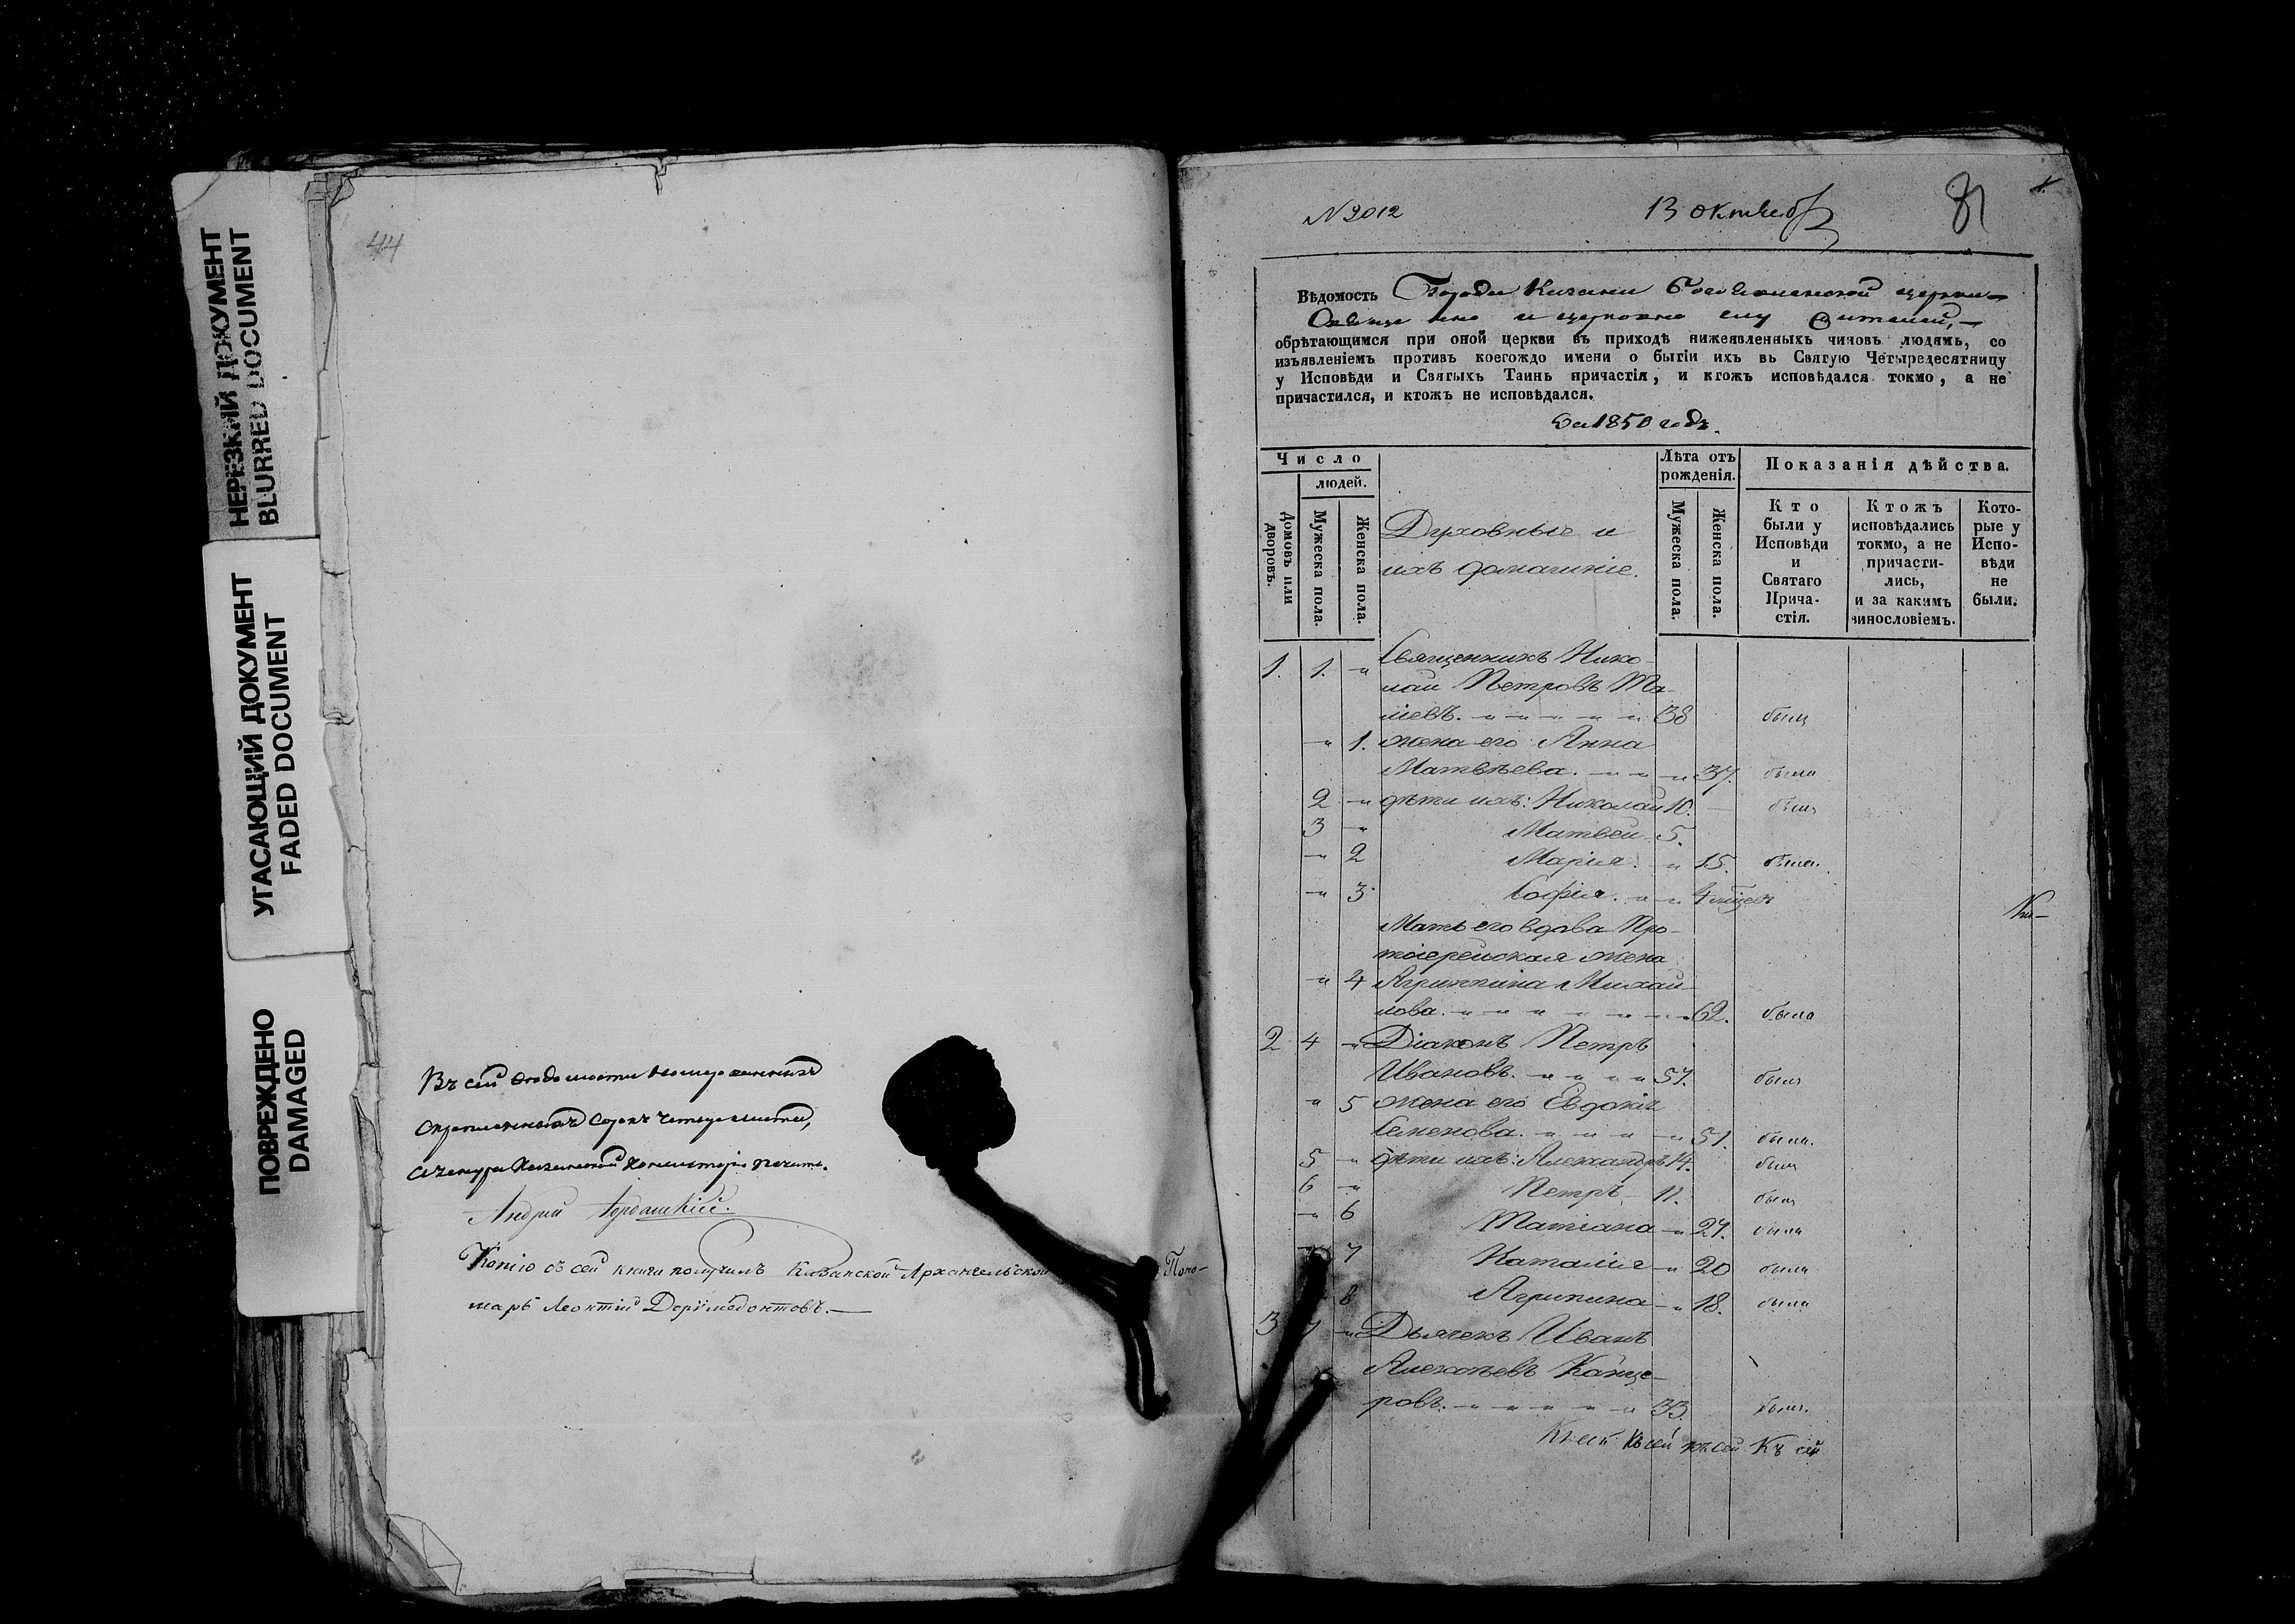 НЕРЕЗКИЙ ДОКУМЕНТ
BLURRED DOCUMENT
УГАСАЮЩИЙ ДОКУМЕНТ
FADED DOCUMENT
ПОВРЕЖДЕНО
DAMAGED
44
Въ сей
листа,
Казанской Консисторіи печать.
Андрей
Копію съ сей книги получилъ Казанской Архангельской Поно-
марь Леонтій Доримедонтовъ.—
N 2012
13 октября
81
Вѣдомость Города Казани Богоявленской церкви
обрѣтающимся при оной церкви въ приходѣ нижеявленныхъ чиновъ людямъ, со
изъявленіемъ противъ коегождо имени о бытіи ихъ въ Святую Четыредесятницу
у Исповѣди и Святыхъ Таинъ причастія, и ктожъ исповѣдался токмо, а не
причастился, и ктожъ не исповѣдался.
За 1850 годъ.
Число
людей.
Домовъ или дворовъ.
Мужеска пола.
Женска пола.
Духовные и
ихъ домашніе.
Лѣта отъ рожденія.
Мужеска пола.
Женска пола.
Показанія дѣйства.
Кто были у Исповѣди и Святаго Прича- стія.
Ктожъ исповѣдались токмо, а не причасти- лись, и за какимъ винословіемъ.
Кото- рые у Испо- вѣди не были.
1. 1. - Священникъ Нико-
лай Петровъ Та-
лиевъ. 38 былъ
- 1. жена его Анна
Матвѣева. 37. была
2 - дѣти ихъ: Николай 10. былъ
3 - Матвей 5.
- 2 Марія. 15. была.
- 3 София. 4
Мать его вдова Про-
тоіерейская жена
- 4 Агриппина Михай-
лова. 62. была
2 4 - Діаконъ Петръ
Ивановъ. 57. былъ
- 5 жена его Евдокія
Семенова. 51. была.
5 - дѣти ихъ: Александръ 14. былъ
6 - Петръ 11. былъ
- 6 Татіана 27. была
7 Наталія 20 была
8 Агрипина 18. была
3 7 - Дьячекъ Иванъ
Алексѣевъ Канце-
ровъ. 33. былъ.
Къ сей Къ сей къ сей Къ сей